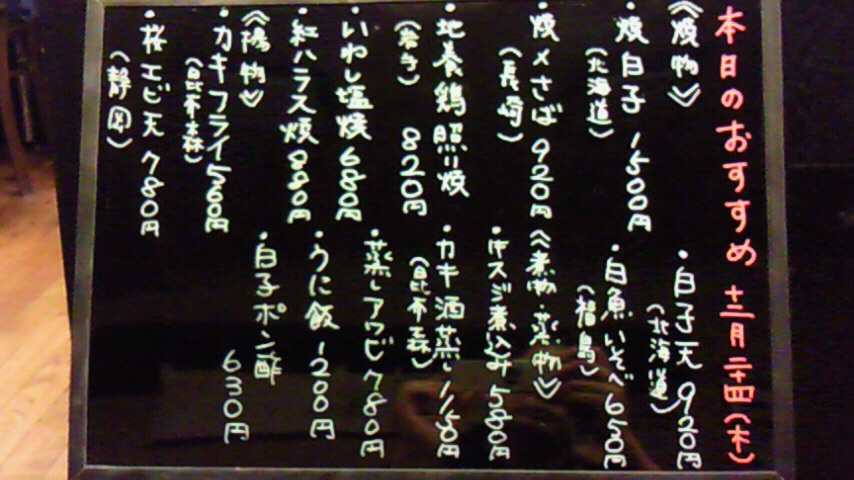 本日のおすすめ 十二月二十四(木)
《焼物》
・焼白子 1500円
(北海道)
・焼〆さば 920円
(長崎)
・地養鶏照り焼
(岩手) 820円
・いわし塩焼 680円
・紅ハラス焼 880円
《揚物》
・カキフライ 560円
(昆布森)
・桜エビ天 780円
(静岡)
・白子天 920円
(北海道)
・白魚いそべ 650円
(福島)
《煮物・蒸物》
・牛スジ煮込み 580円
・カキ酒蒸し 1150円
(昆布森)
・蒸しアワビ 780円
・うに飯 1200円
・白子ポン酢
630円